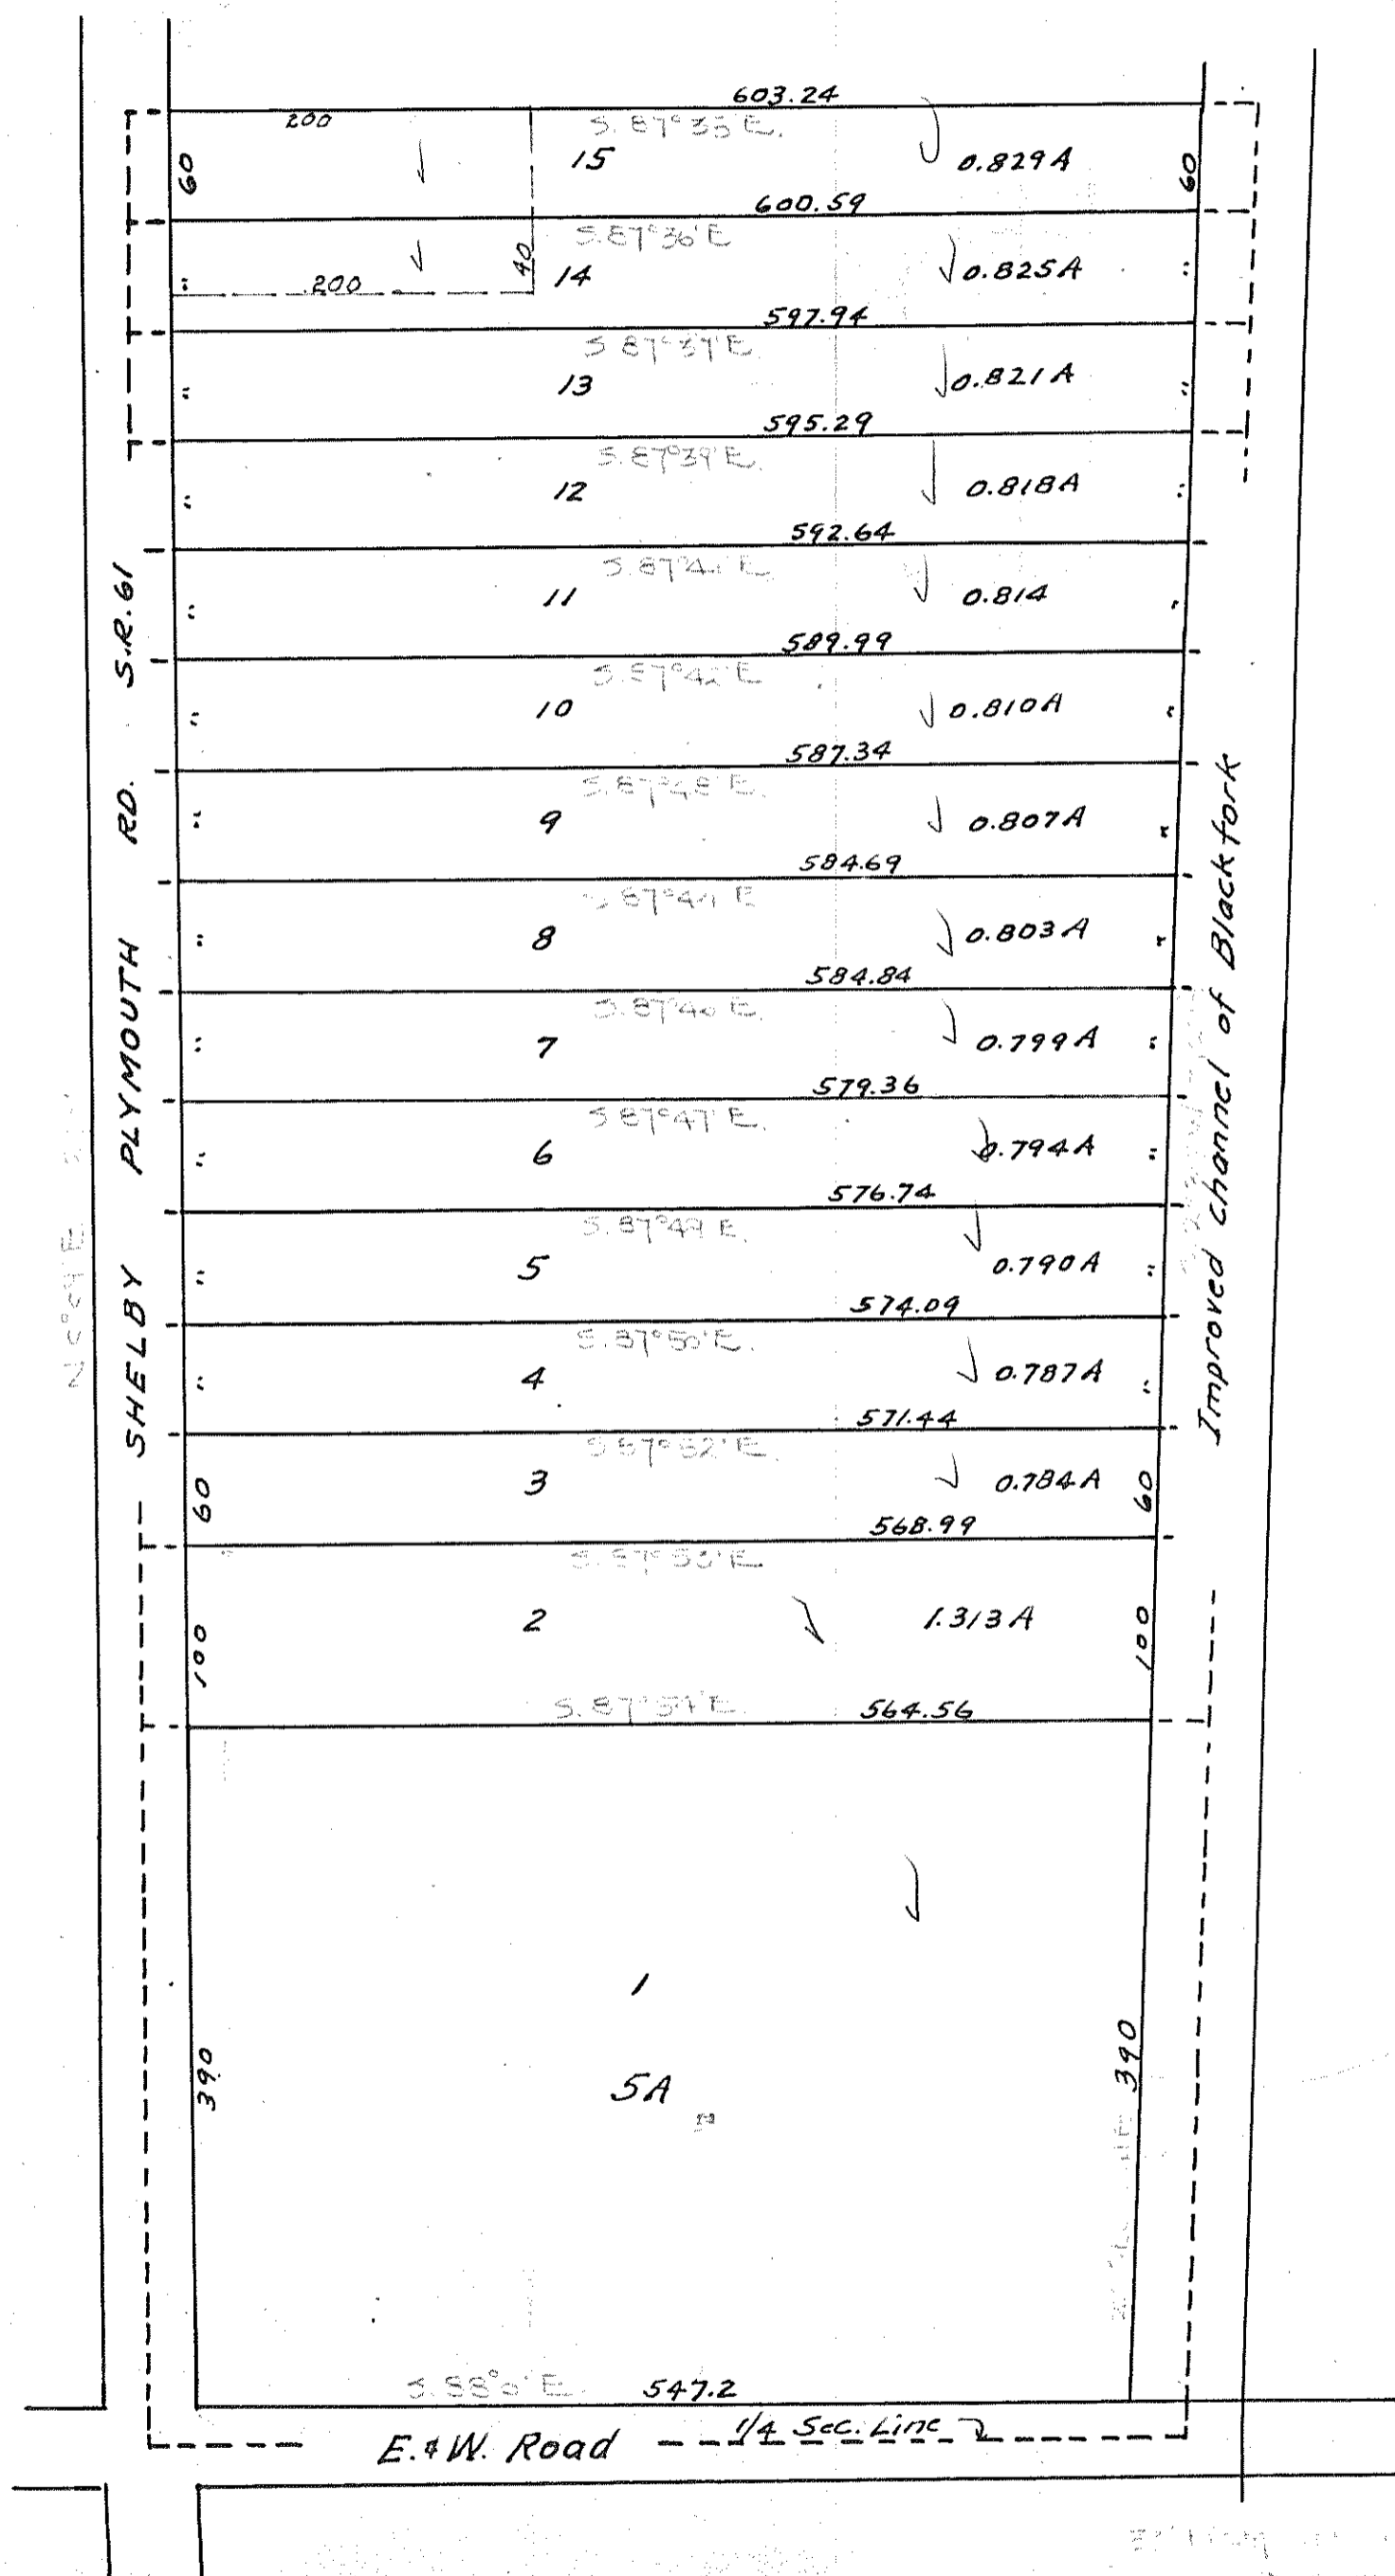 603.24
200
S. 87°35'E.
60
15
0.829A
60
600.59
S. 87°36'E
40
14
0.825A
200
597.94
S 87°37'E.
13
0.821A
595.29
S. 87°39'E.
12
0.818A
592.64
11
0.814
589.99
10
0.810A
587.34
9
0.807A
584.69
8
0.803A
584.84
7
0.799A
579.36
S 87°47'E.
6
0.794A
576.74
S. 87°49'E.
5
0.790A
574.09
S. 87°50'E.
4
0.787A
571.44
S 87°52'E.
60
3
0.784A
60
568.99
S. 87°53'E
100
2
1.313A
100
S. 87°54'E.
564.56
1
390
5A
390
S. 88°0'E.
547.2
E. & W. Road
1/4 Sec. Line
SHELBY PLYMOUTH RD. S.R. 61
Improved channel of Blackfork